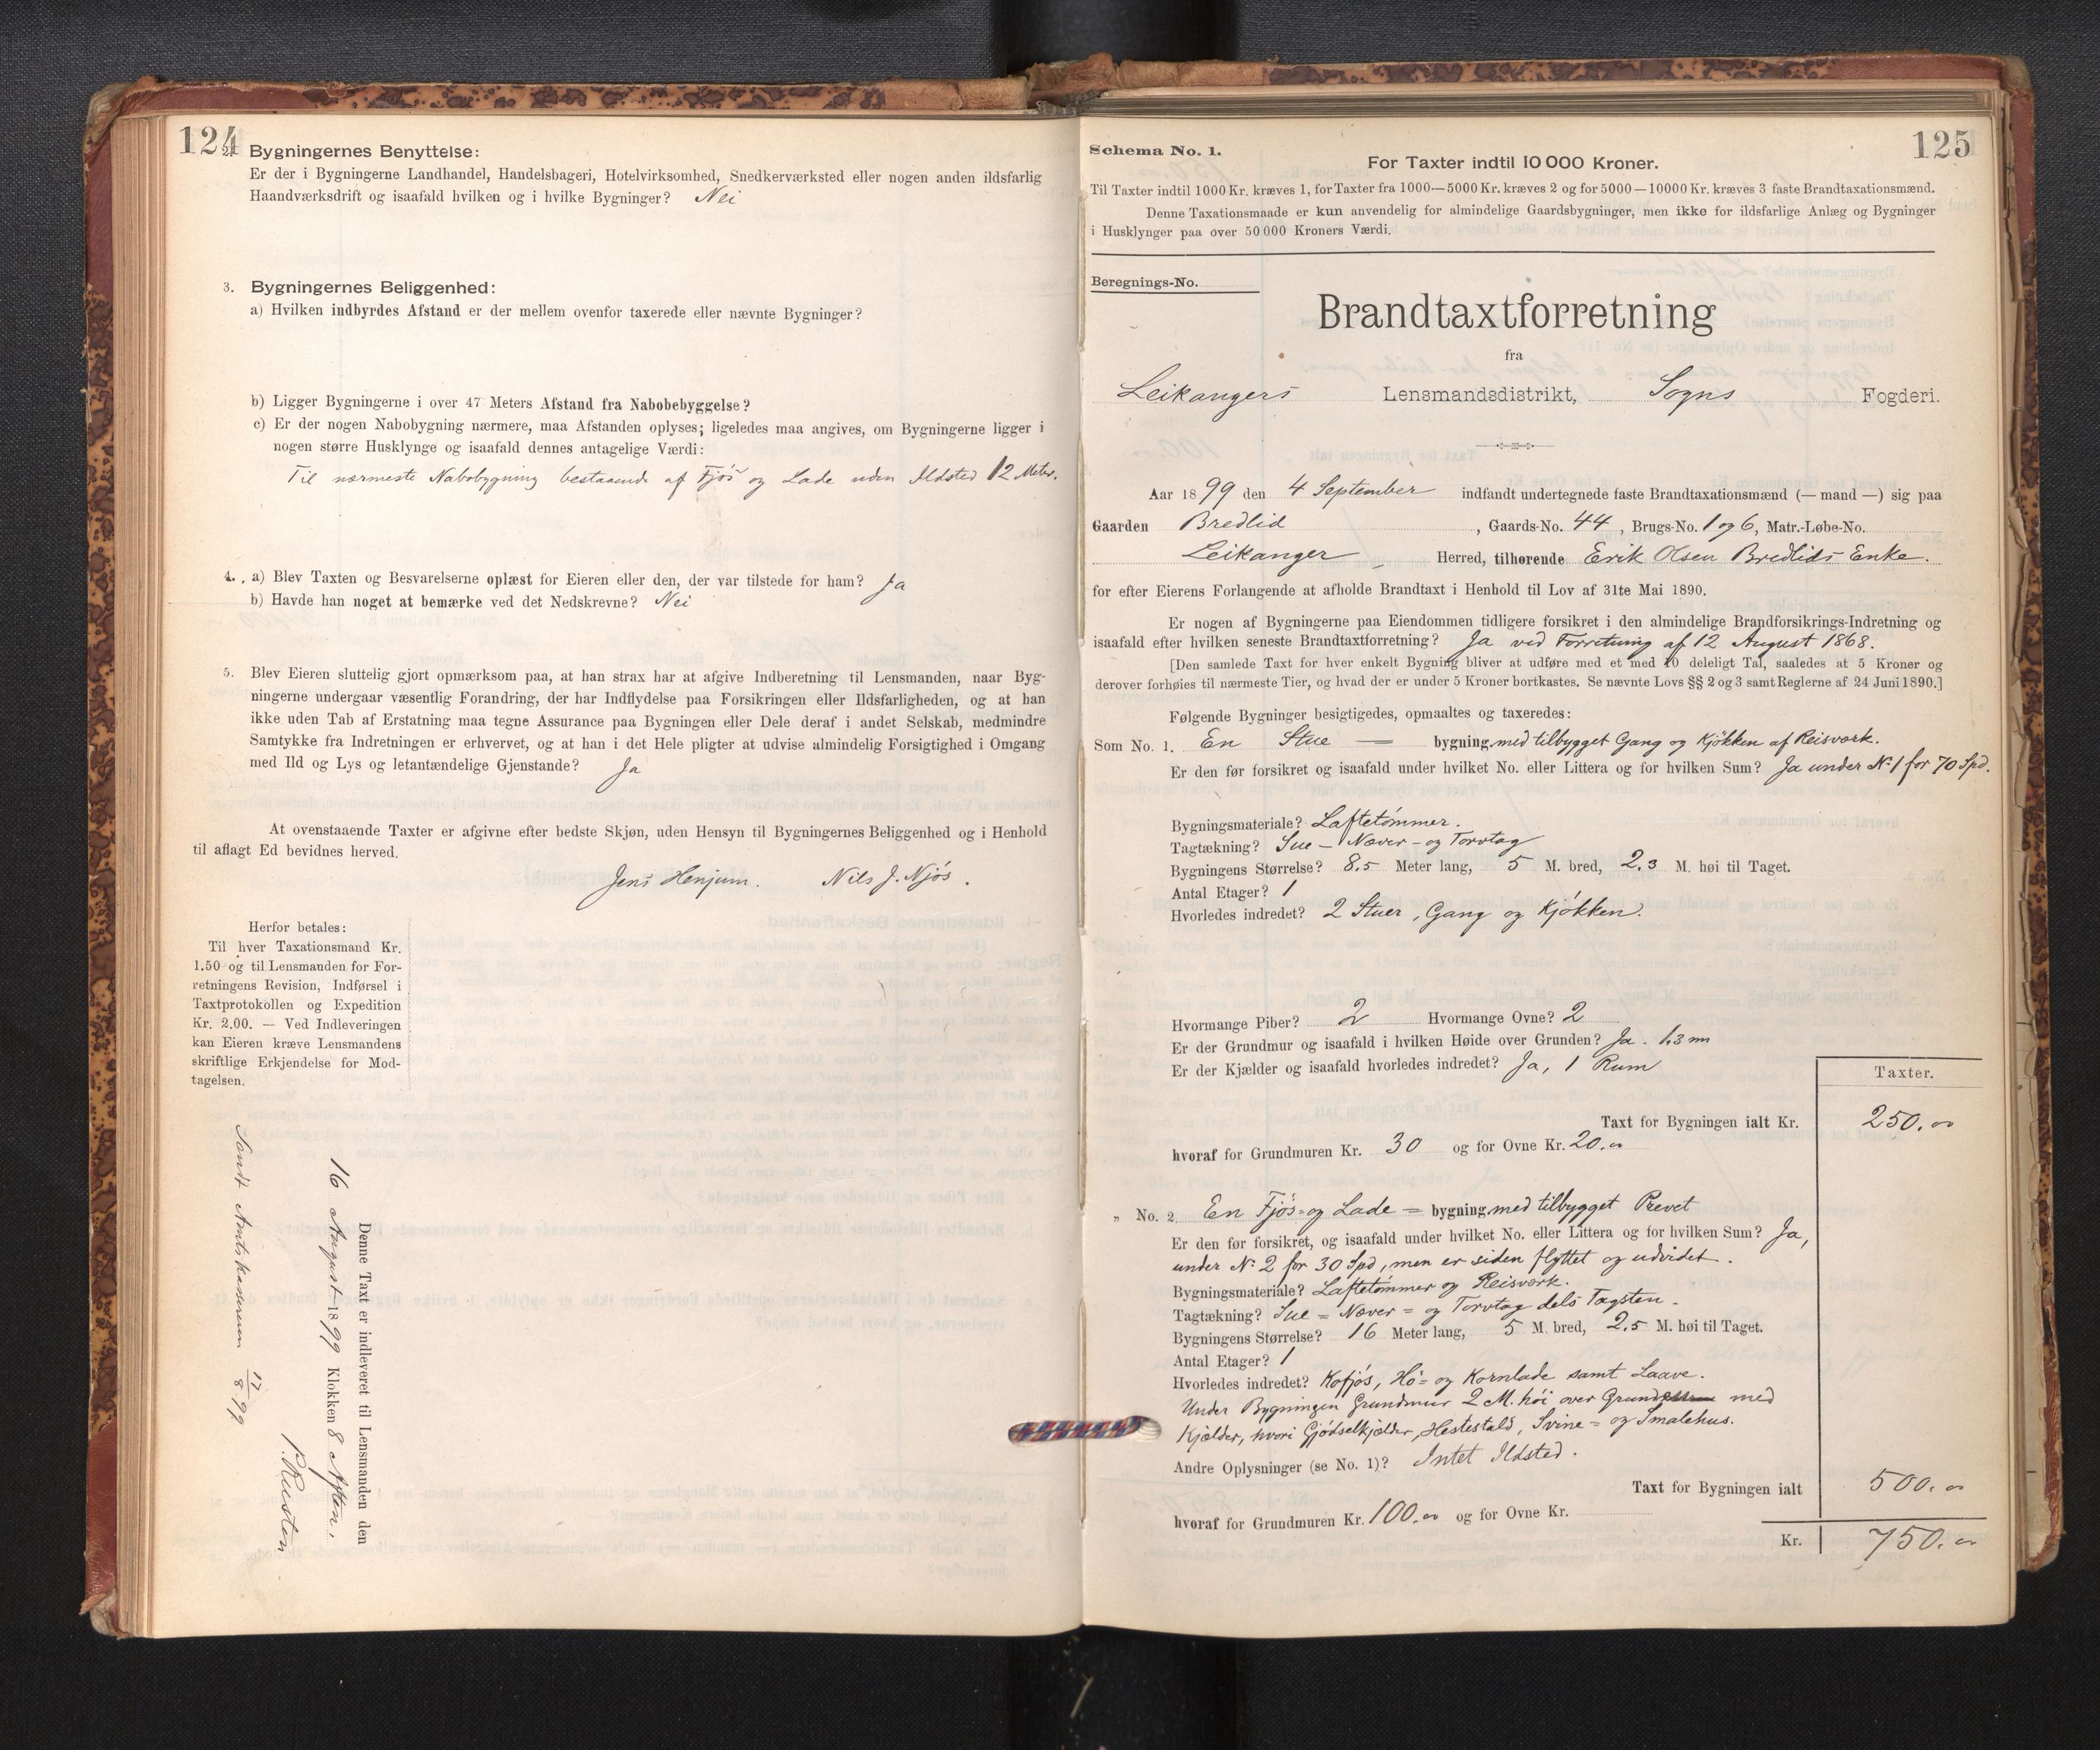 124
2. Bygningernes Benyttelse:
Er der i Bygningerne Landhandel, Handelsbageri, Hotelvirksomhed, Snedkerværksted eller nogen anden ildsfarlig
Haandværksdrift og isaafald hvilken og i hvilke Bygninger? Nei
3. Bygningernes Beliggenhed:
a) Hvilken indbyrdes Afstand er der mellem ovenfor taxerede eller nævnte Bygninger?
b) Ligger Bygningerne i over 47 Meters Afstand fra Nabobebyggelse?
c) Er der nogen Nabobygning nærmere, maa Afstanden oplyses; ligeledes maa angives, om Bygningerne ligger i
nogen større Husklynge og isaafald dennes antagelige Værdi:
Til nærmeste Nabobygning bestaaende af Fjøs og Lade uden Ildsted 12 Meter.
4. a) Blev Taxten og Besvarelserne oplæst for Eieren eller den, der var tilstede for ham? Ja
b) Havde han noget at bemærke ved det Nedskrevne? Nei
5. Blev Eieren sluttelig gjort opmærksom paa, at han strax har at afgive Indberetning til Lensmanden, naar Byg-
ningerne undergaar væsentlig Forandring, der har Indflydelse paa Forsikringen eller Ildsfarligheden, og at han
ikke uden Tab af Erstatning maa tegne Assurance paa Bygningen eller Dele deraf i andet Selskab, medmindre
Samtykke fra Indretningen er erhvervet, og at han i det Hele pligter at udvise almindelig Forsigtighed i Omgang
med Ild og Lys og letantændelige Gjenstande? Ja
At ovenstaaende Taxter er afgivne efter bedste Skjøn, uden Hensyn til Bygningernes Beliggenhed og i Henhold
til aflagt Ed bevidnes herved.
Jens Henjum. Nils J. Njøs.
Herfor betales:
Til hver Taxationsmand Kr.
1.50 og til Lensmanden for For-
retningens Revision, Indførsel i
Taxtprotokollen og Expedition
Kr. 2.00. — Ved Indleveringen
kan Eieren kræve Lensmandens
skriftlige Erkjendelse for Mod-
tagelsen.
Denne Taxt er indleveret til Lensmanden den
16 August 1899 Klokken 8 Aften.
P. Reusten
Sendt Amtskassereren 17/8 99
125
Schema No. 1.
For Taxter indtil 10 000 Kroner.
Til Taxter indtil 1000 Kr. kræves 1, for Taxter fra 1000—5000 Kr. kræves 2 og for 5000—10000 Kr. kræves 3 faste Brandtaxationsmænd.
Denne Taxationsmaade er kun anvendelig for almindelige Gaardsbygninger, men ikke for ildsfarlige Anlæg og Bygninger
i Husklynger paa over 50 000 Kroners Værdi.
Beregnings-No.
Brandtaxtforretning
fra
Leikangers Lensmandsdistrikt, Sogns Fogderi.
Aar 1899 den 4 September indfandt undertegnede faste Brandtaxationsmænd (— mand —) sig paa
Gaarden Bredlid, Gaards-No. 44, Brugs-No. 1 og 6, Matr.-Løbe-No.
Leikanger Herred, tilhørende Erik Olsen Bredlids Enke.
for efter Eierens Forlangende at afholde Brandtaxt i Henhold til Lov af 31te Mai 1890.
Er nogen af Bygningerne paa Eiendommen tidligere forsikret i den almindelige Brandforsikrings-Indretning og
isaafald efter hvilken seneste Brandtaxtforretning? Ja ved Forretning af 12 August 1868.
[Den samlede Taxt for hver enkelt Bygning bliver at udføre med et med 10 deleligt Tal, saaledes at 5 Kroner og
derover forhøies til nærmeste Tier, og hvad der er under 5 Kroner bortkastes. Se nævnte Lovs §§ 2 og 3 samt Reglerne af 24 Juni 1890.]
Følgende Bygninger besigtigedes, opmaaltes og taxeredes:
Som No. 1. En Stue — bygning med tilbygget Gang og Kjøkken af Reisværk.
Er den før forsikret og isaafald under hvilket No. eller Littera og for hvilken Sum? Ja under No 1 for 70 Spd.
Bygningsmateriale? Laftetømmer.
Tagtækning? Sue - Næver - og Torvtag
Bygningens Størrelse? 8.5 Meter lang, 5 M. bred, 2.3 M. høi til Taget.
Antal Etager? 1
Hvorledes indredet? 2 Stuer, Gang og Kjøkken.
Hvormange Piber? 2 Hvormange Ovne? 2
Er der Grundmur og isaafald i hvilken Høide over Grunden? Ja. 1.3 m
Er der Kjælder og isaafald hvorledes indredet? Ja, 1 Rum
Taxter.
Taxt for Bygningen ialt Kr. 250.00
hvoraf for Grundmuren Kr. 30 og for Ovne Kr. 20.00
„ No. 2. En Fjøs= og Lade = bygning med tilbygget Prevet
Er den før forsikret, og isaafald under hvilket No. eller Littera og for hvilken Sum? Ja,
under No 2 for 30 Spd, men er siden flyttet og udvidet.
Bygningsmateriale? Laftetømmer og Reisværk.
Tagtækning? Sue = Næver = og Torvtag dels Tagsten.
Bygningens Størrelse? 16 Meter lang, 5 M. bred, 2.5 M. høi til Taget.
Antal Etager? 1
Hvorledes indredet? Kofjøs, Hø= og Kornlade samt Laave.
Under Bygningen Grundmur 2 M. høi over Grund med
Kjælder, hvori Gjødselkjælder, Hestestald, Svine = og Smalehus.
Andre Oplysninger (se No. 1)? Intet Ildsted.
Taxt for Bygningen ialt 500.00
hvoraf for Grundmuren Kr. 100.00 og for Ovne Kr.
Kr. 750.00